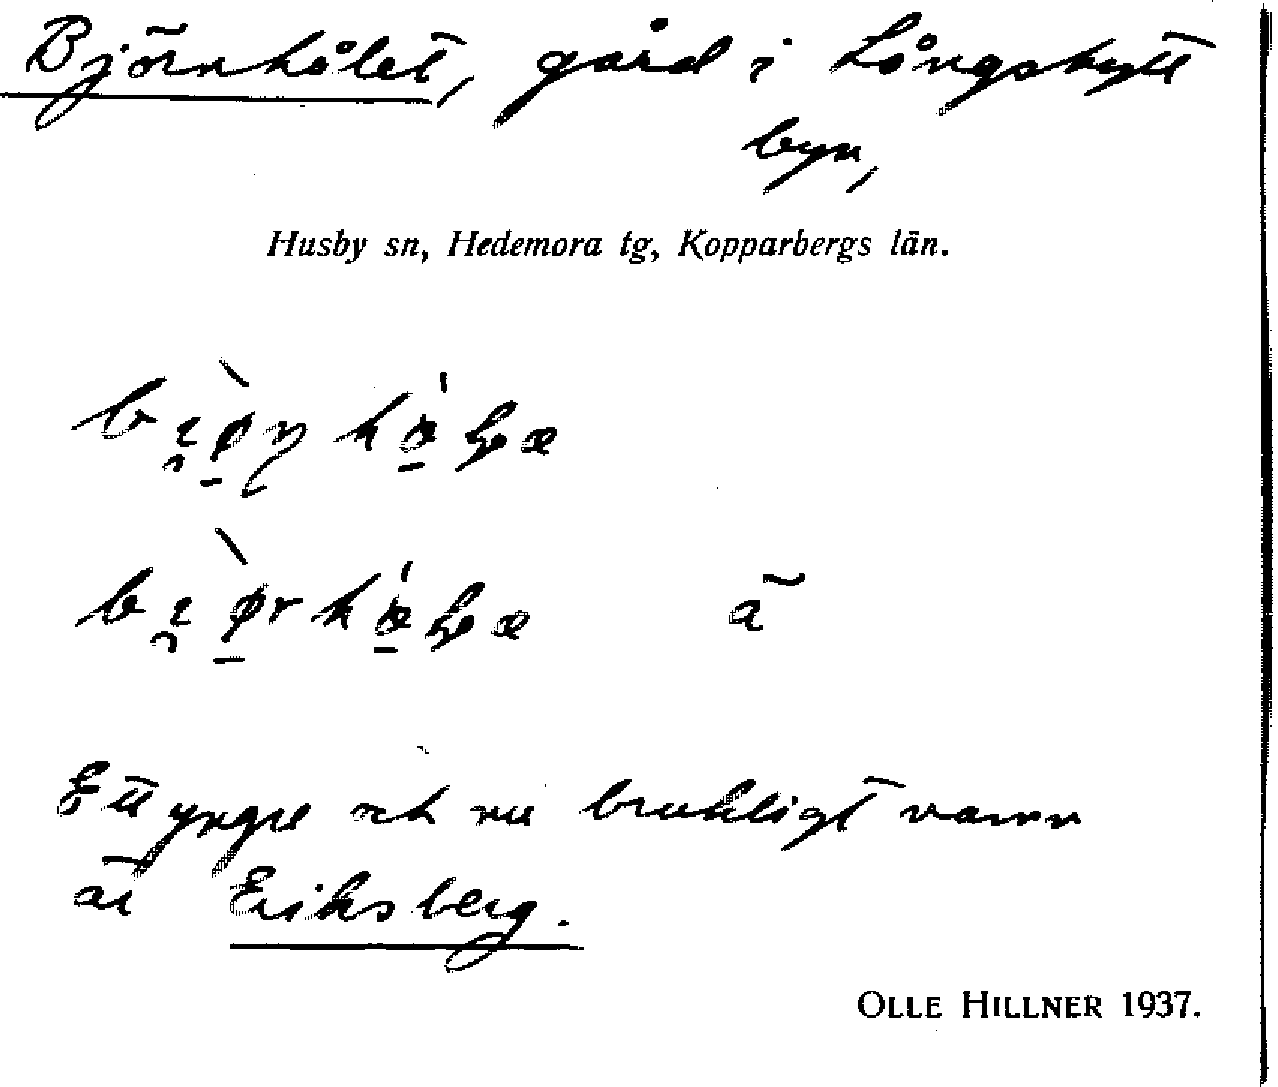 Björnhålet, gård i Långshytt
byn,
Husby sn, Hedemora tg, Kopparbergs län.
ä
Ett yngre och nu brukligt namn
är Eriksberg.
OLLE HILLNER 1937.